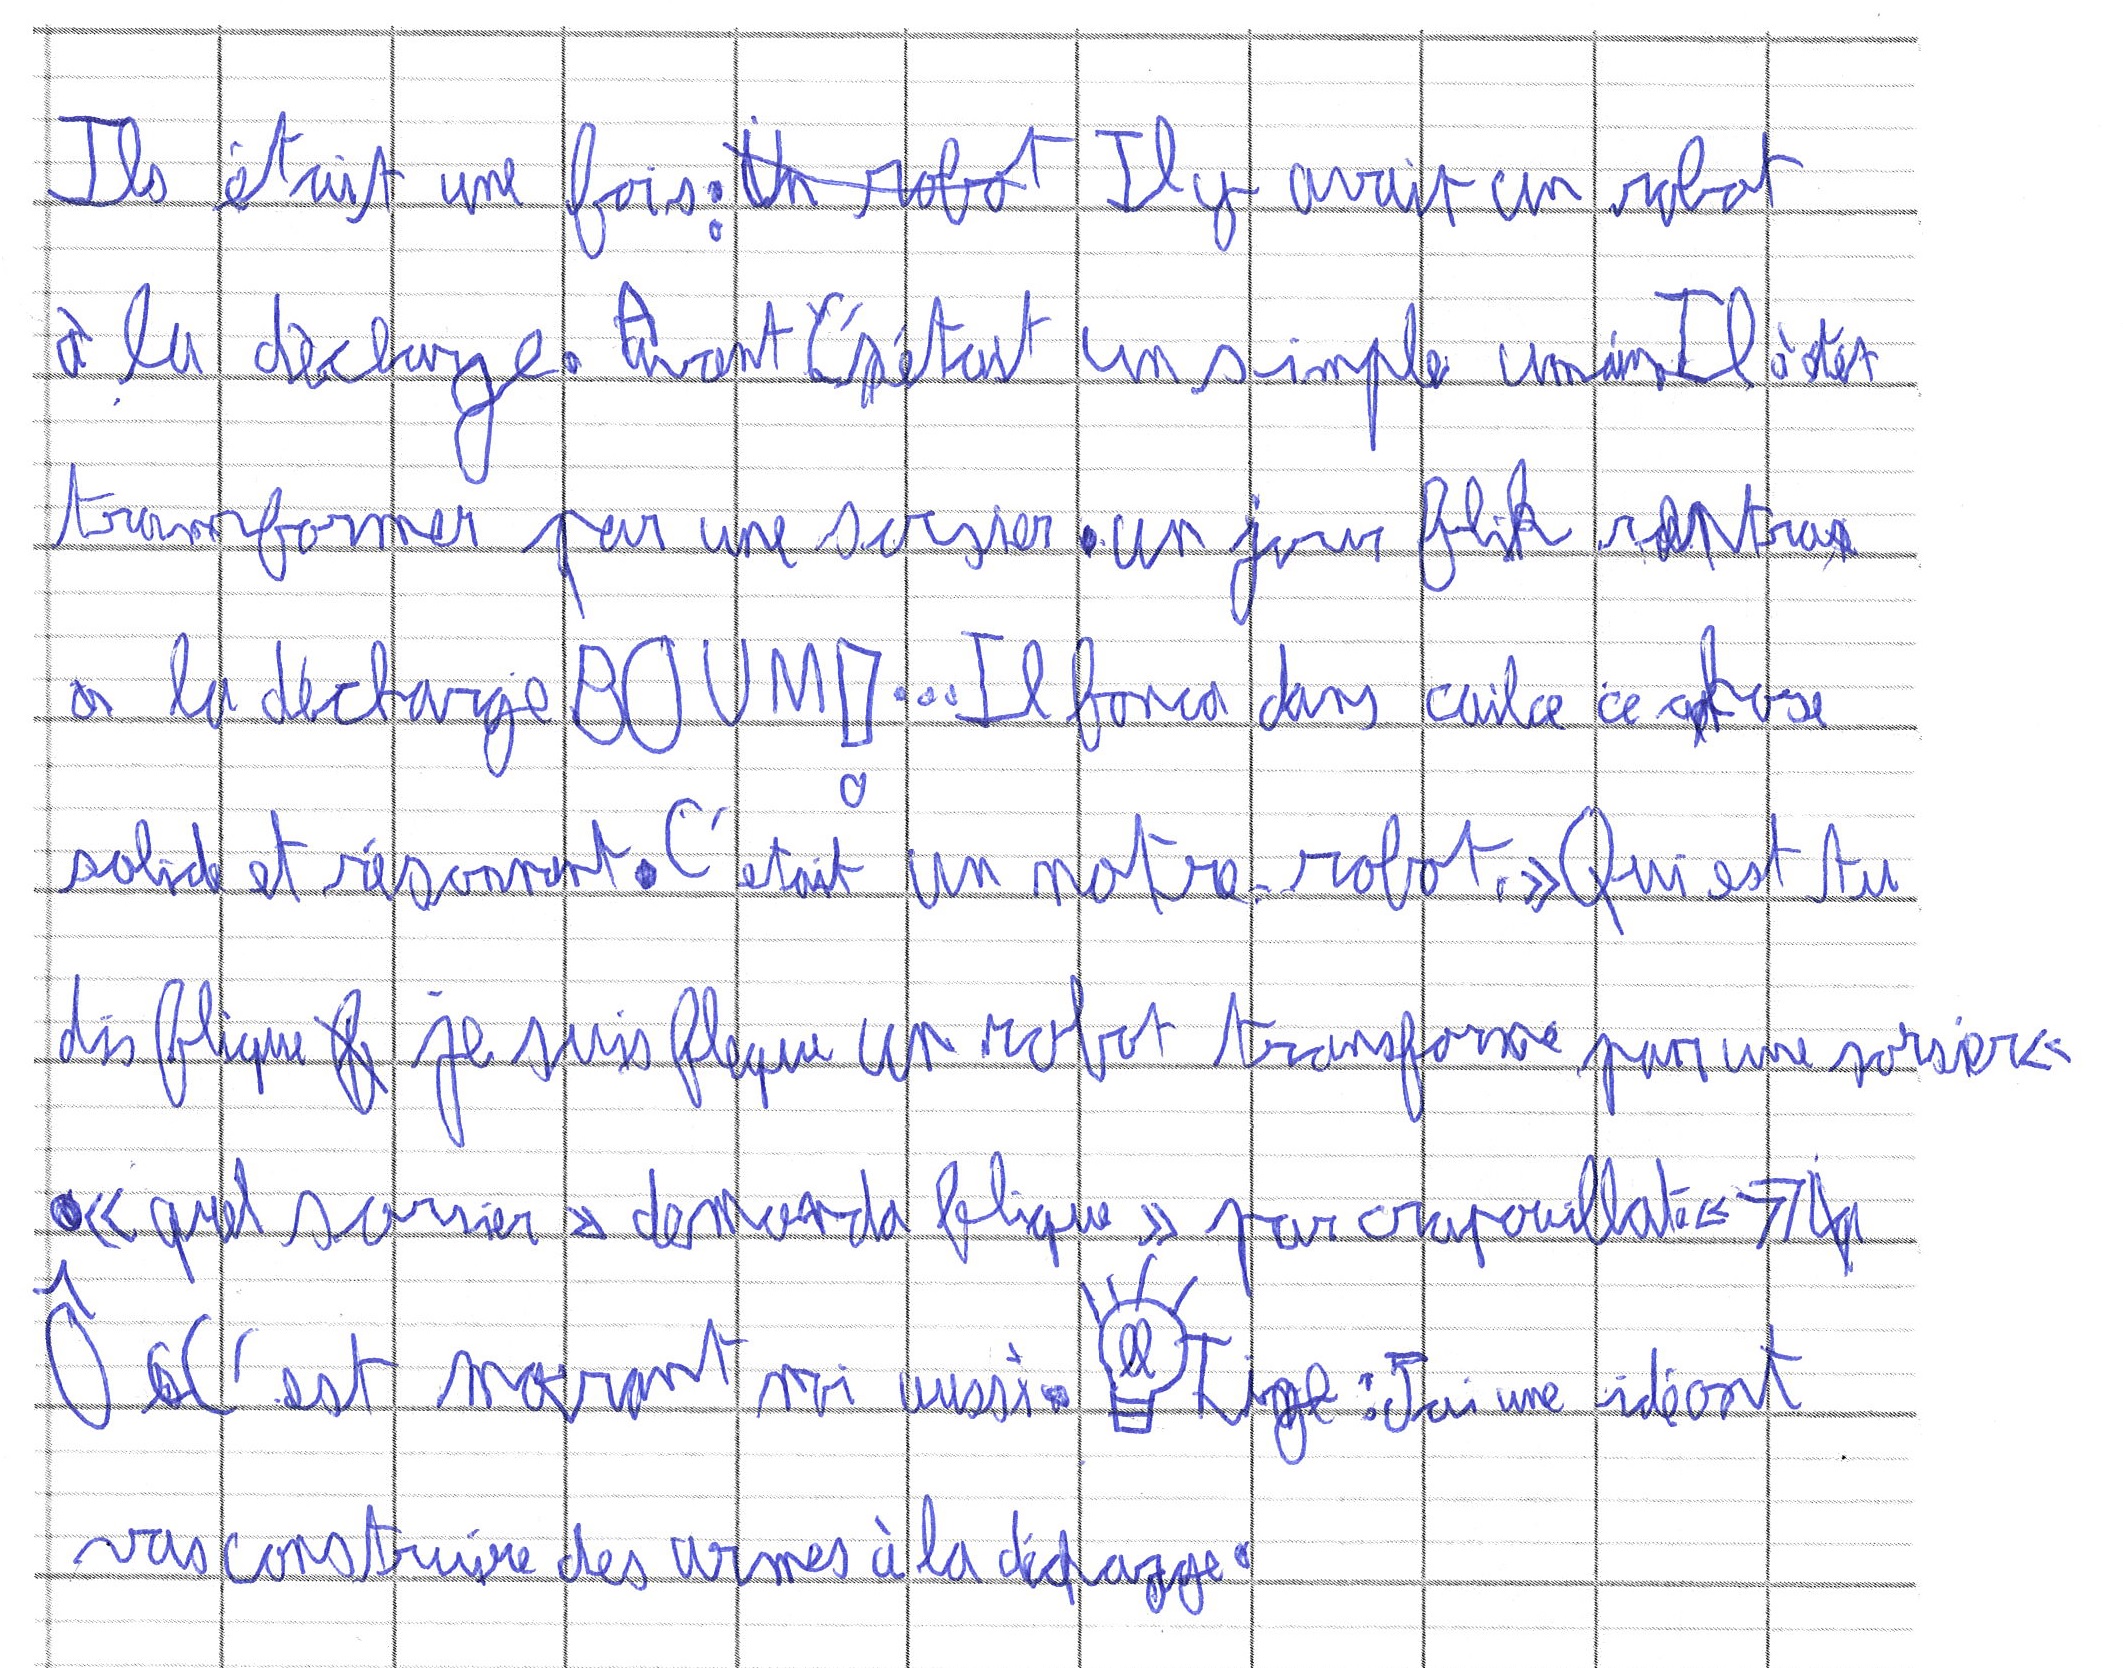 Ils était une fois: Il y avait un robot
à la décharge. Avant C'était un simple umain. Il à étét
transformer par une sorsier. un jour flik rentra
a la décharge BOUM! ... Il fonca dans cailce ce chose
solide et résonnent. C'était un notre robot. »Qui est tu
dis flique je suis fleque un robot transformé par une sorsier«
« quel sorsier » demanda flique » par crapouillat «
Ô C'est marant moi aussi. : J'ai une idéont
vas construire des armes à la décharge.